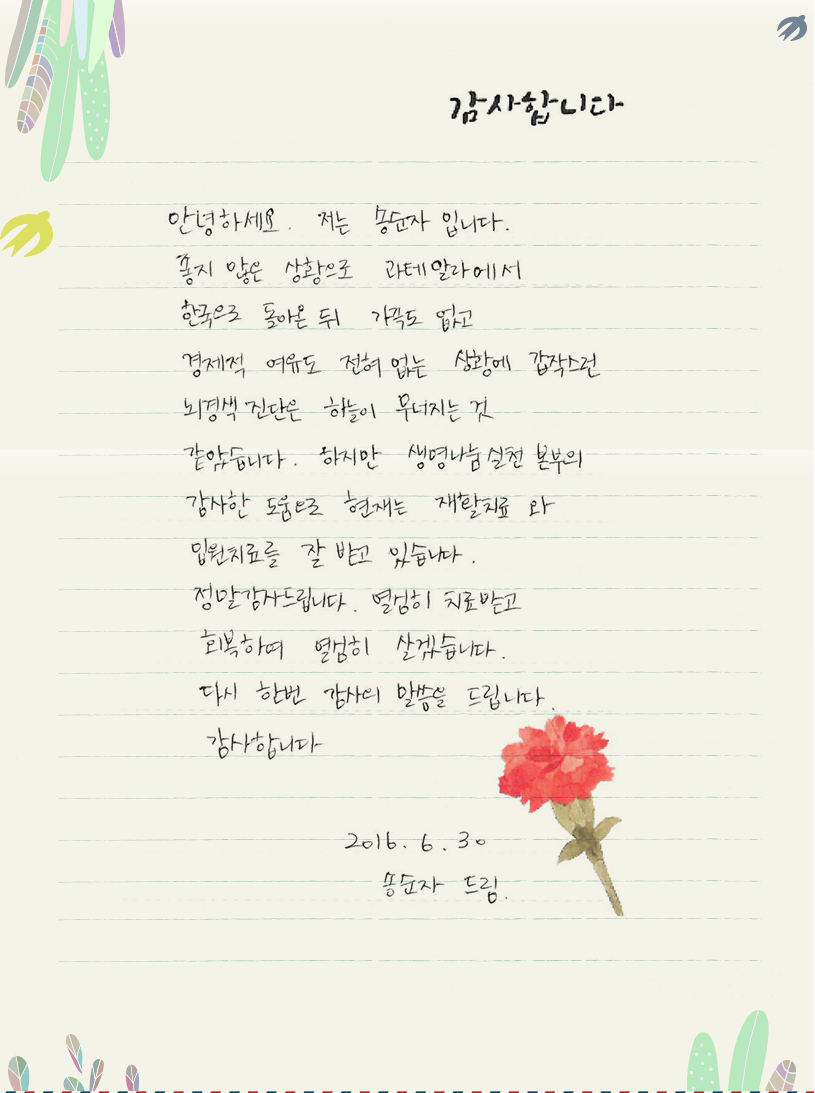 감사합니다
안녕하세요. 저는 송순자 입니다.
좋지 않은 상황으로 과테말라에서
한국으로 돌아온 뒤 가족도 없고
경제적 여유도 전혀 없는 상황에 갑작스런
뇌경색 진단은 하늘이 무너지는 것
같았습니다. 하지만 생명나눔실천 본부의
감사한 도움으로 현재는 재활치료 와
입원치료를 잘 받고 있습니다.
정말감사드립니다. 열심히 치료받고
회복하여 열심히 살겠습니다.
다시 한번 감사의 말씀을 드립니다.
감사합니다
2016. 6. 30
송순자 드림.